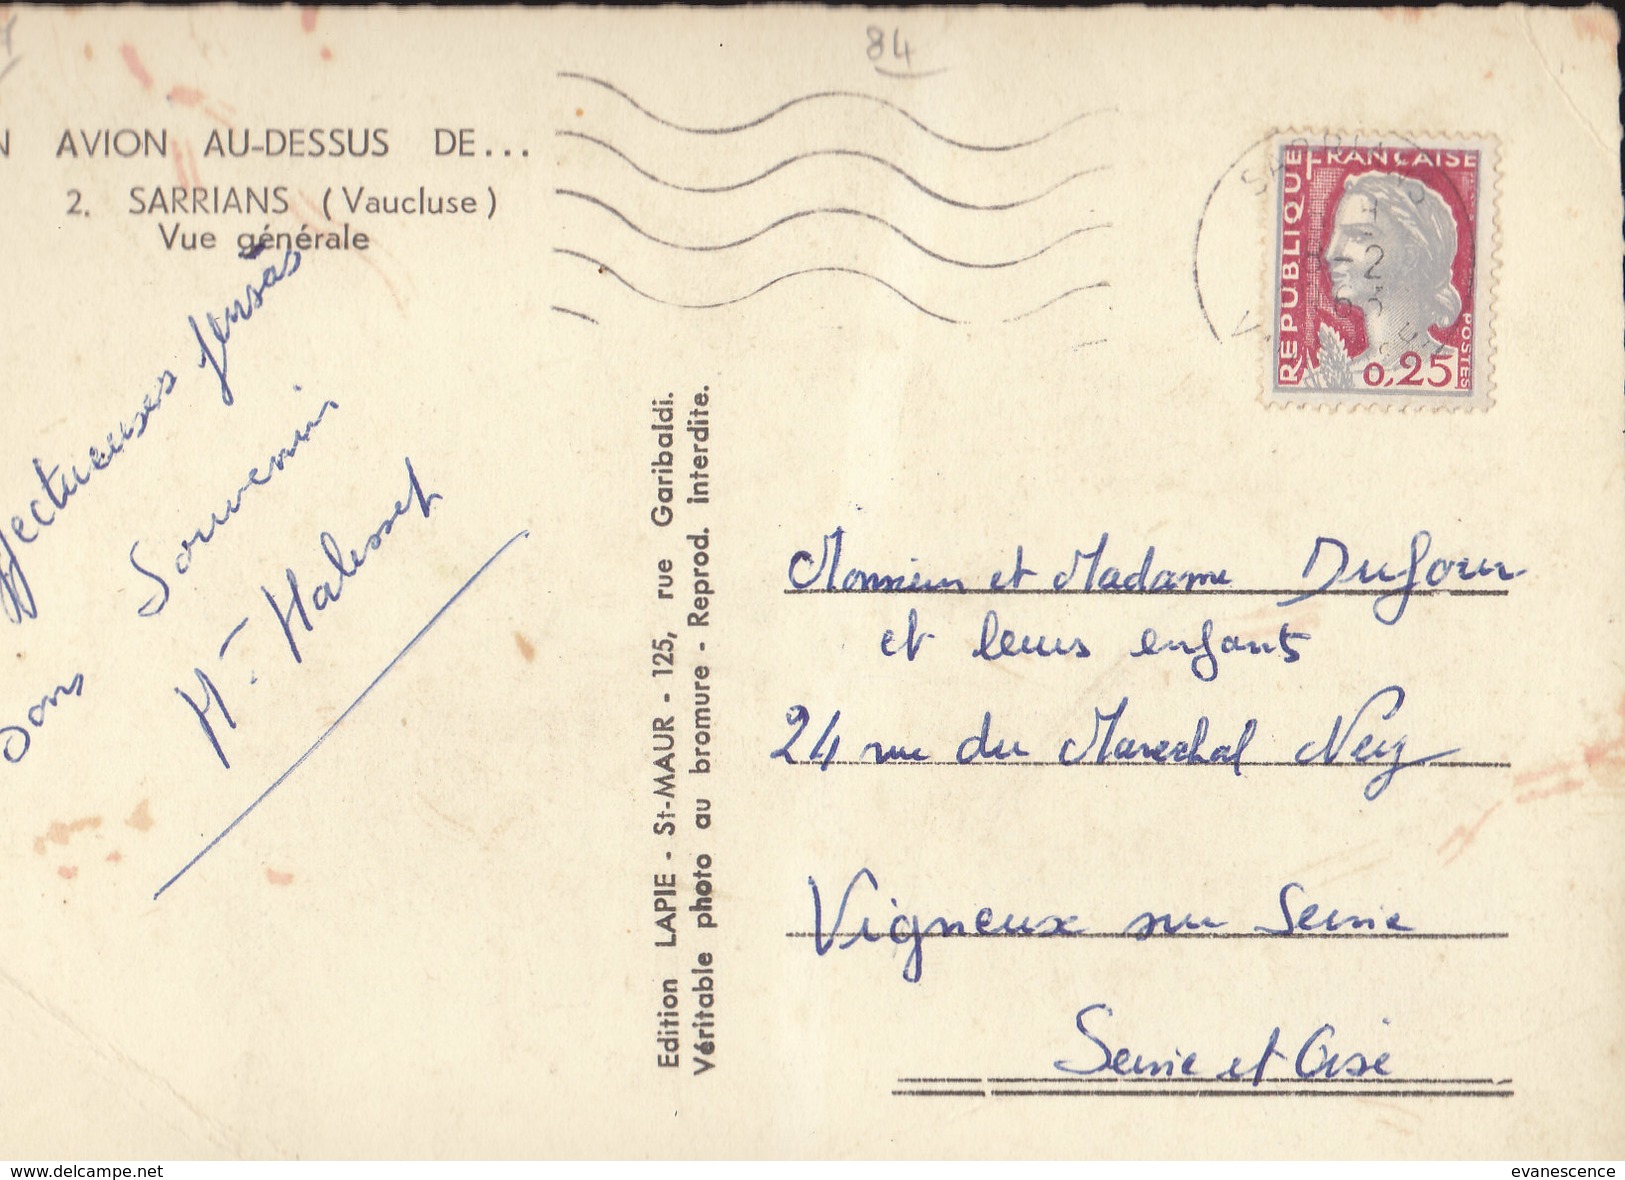 84
N AVION AU-DESSUS DE...
2. SARRIANS (Vaucluse)
Vue générale
fectueuses pensées
Bons Souvenirs
Edition LAPIE - St-MAUR - 125, rue Garibaldi.
Véritable photo au bromure - Reprod. interdite.
REPUBLIQUE FRANÇAISE
POSTES
0,25
Monsieur et Madame Dufour
et leurs enfants
24 rue du Marechal Ney
Vigneux sur Seine
Seine et Oise
www.delcampe.net
evanescence